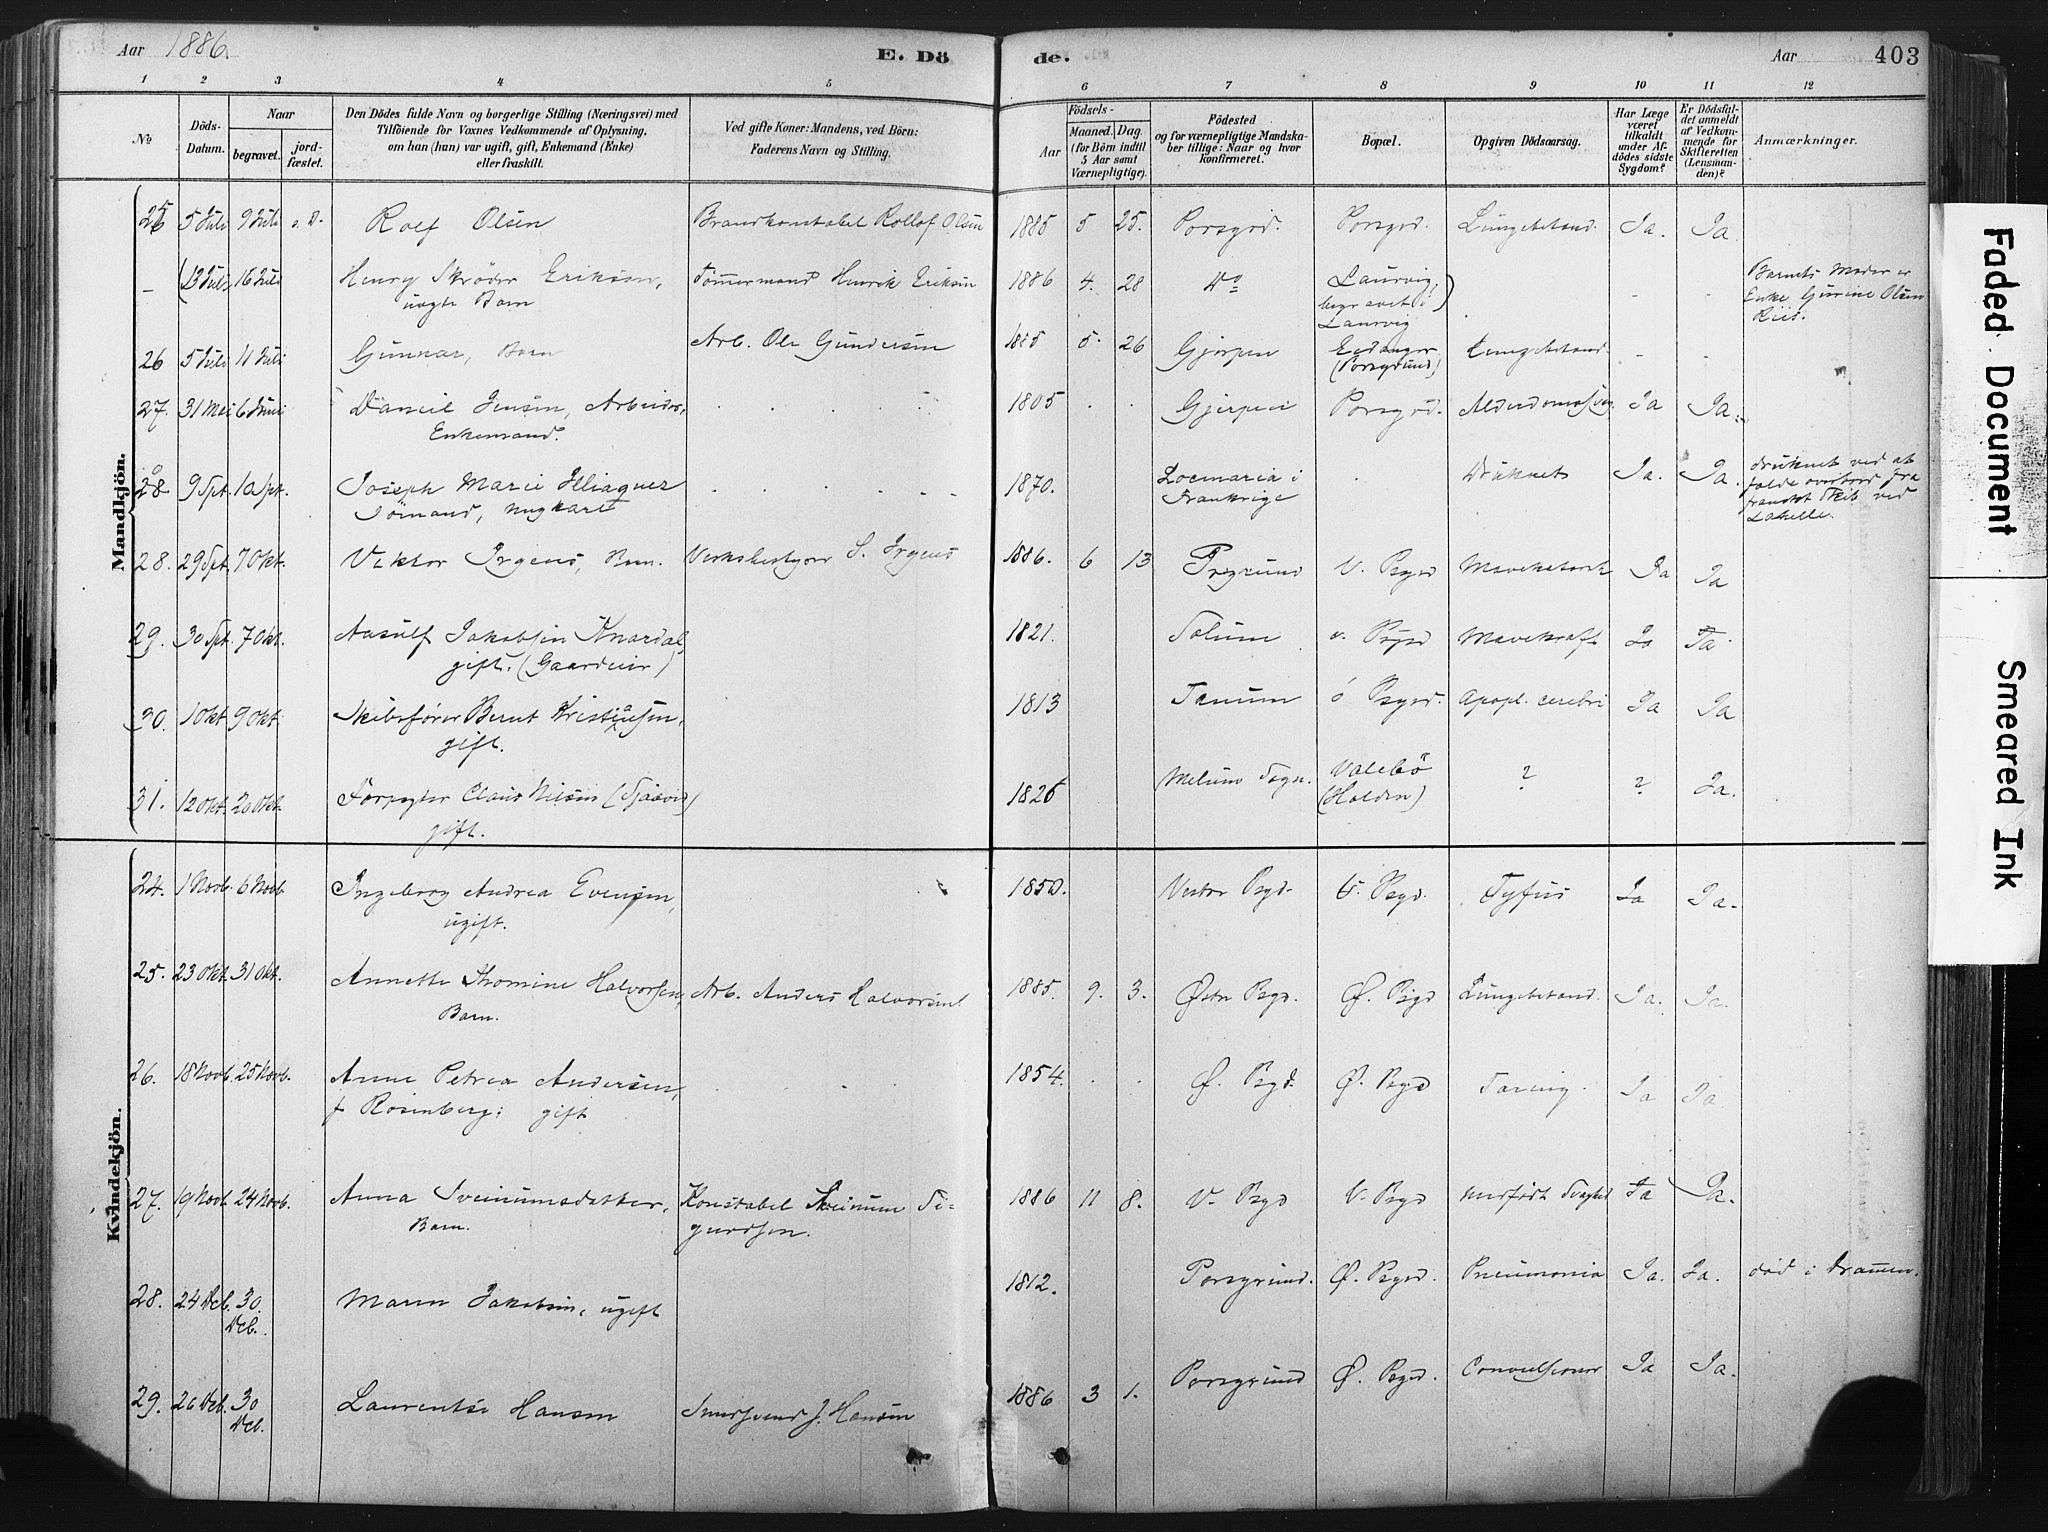 Aar 1886.
E. Dö
de.
Aar
403
1 2 3 4 5 6 7 8 9 10 11 12
No
Döds-
Datum.
Naar
begravet.
jord-
fæstet.
Den Dödes fulde Navn og borgerlige Stilling (Næringsvei) med
Tilföiende for Voxnes Vedkommende af Oplysning,
om han (hun) var ugift, gift, Enkemand (Enke)
eller fraskilt.
Ved gifte Koner: Mandens, ved Börn:
Faderens Navn og Stilling.
Födsels-
Aar
Maaned. Dag.
(for Börn indtil
5 Aar samt
Værnepligtige).
Födested
og for værnepligtige Mandska-
ber tillige: Naar og hvor
Konfirmeret.
Bopæl.
Opgiven Dödsaarsag.
Har Læge
været
tilkaldt
under Af-
dödes sidste
Sygdom?
Er Dödsfal-
det anmeldt
af Vedkom-
mende for
Skifteretten
(Lensman-
den)?
Anmærkninger.
Mandkjön.
25 5 Juli 9 Juli s. D. Rolf Olsen Brandkonstabel Rollof Olsen 1885 5 25. Porsgrd. Porsgrd. Lungebetænd. Ja. Ja
- (13 Juli 16 Juli Henry Skröder Eriksen, Tömmermand Henrik Eriksen 1886 4. 28 Do Laurvig, - - Barnets Moder er
uægte Barn begravet i Enke Gurine Olsen
Laurvig) Riis.
26 5 Juli 11 Juli Gunnar, Barn Arb. Ole Gundersen 1885 5. 26 Gjerpen Eidanger Lungebetænd - -
(Porsgrund)
27. 31 Mai 6 Juni Daniel Jensen, Arbeider, 1805 Gjerpen Porsgrd. Ja Ja.
Enkemand.
28 9 Spt. 10 Spt. Joseph Marie 1870. Locmaria i Druknet Ja. Ja. druknet ved at
Sömand, ungkarl Frankrige falde overbord fra
franskt Skib ved
28. 29 Spt. 7 Okt. Viktor Irgens, Barn. Verksbestyrer S. Irgens 1886. 6 13 Prsgrund V. Psgrd Ja Ja
29. 30 Spt. 7 Okt. Aasulf Jakobsen Knardal, 1821. Solum v. Psgrd Mavekræft Ja Ja
gift. (Gaardeier)
30. 1 Okt. 9 Okt. Skibsförer Bernt Kristiansen, 1813 Tanum ö Psgrd. apopl. cerebri Ja Ja
gift.
31. 12 Okt. 20 Okt. Forpagter Claus Nilsen 1826 Melum Sogn. Valebö ? ? Ja.
gift. (Holden)
Kvindekjön.
24. 1 Novb. 6 Novb. Ingeborg Andrea Evensen, 1850. Vestre Psgd. V. Psgd. Tyfus Ja Ja.
ugift.
25. 23 Okt. 31 Okt. Annette Thomine Halvorsen, Arb. Anders Halvorsen 1885. 9. 3. Östre Psgd. Ø. Psgd Lungebetænd. Ja. Ja.
Barn.
26. 18 Novb. 25 Novb. Anne Petrea Andersen, 1854. Ø. Psgd. Ø. Psgd Tæring. Ja Ja
f. Rosenberg: gift
27. 19 Novb. 24 Novb. Anna Sveinumsdatter, Konstabel Sveinum Si- 1886 11 8. V. Psgd V. Psgd medfödt Svaghed Ja Ja.
Barn. gurdsen.
28. 24 Dcb. 30 Maren Jakobsen, ugift 1812. Porsgrund. Ø. Psgrd. Pneumonia Ja. Ja. död i Drammen.
Dcb.
29. 26 Dcb. 30 Laurentse Hansen J. Hansen 1886 3 1. Porsgrund Ø. Psgrd. Convulsioner Ja Ja.
Dcb.
Faded Document
Smeared Ink